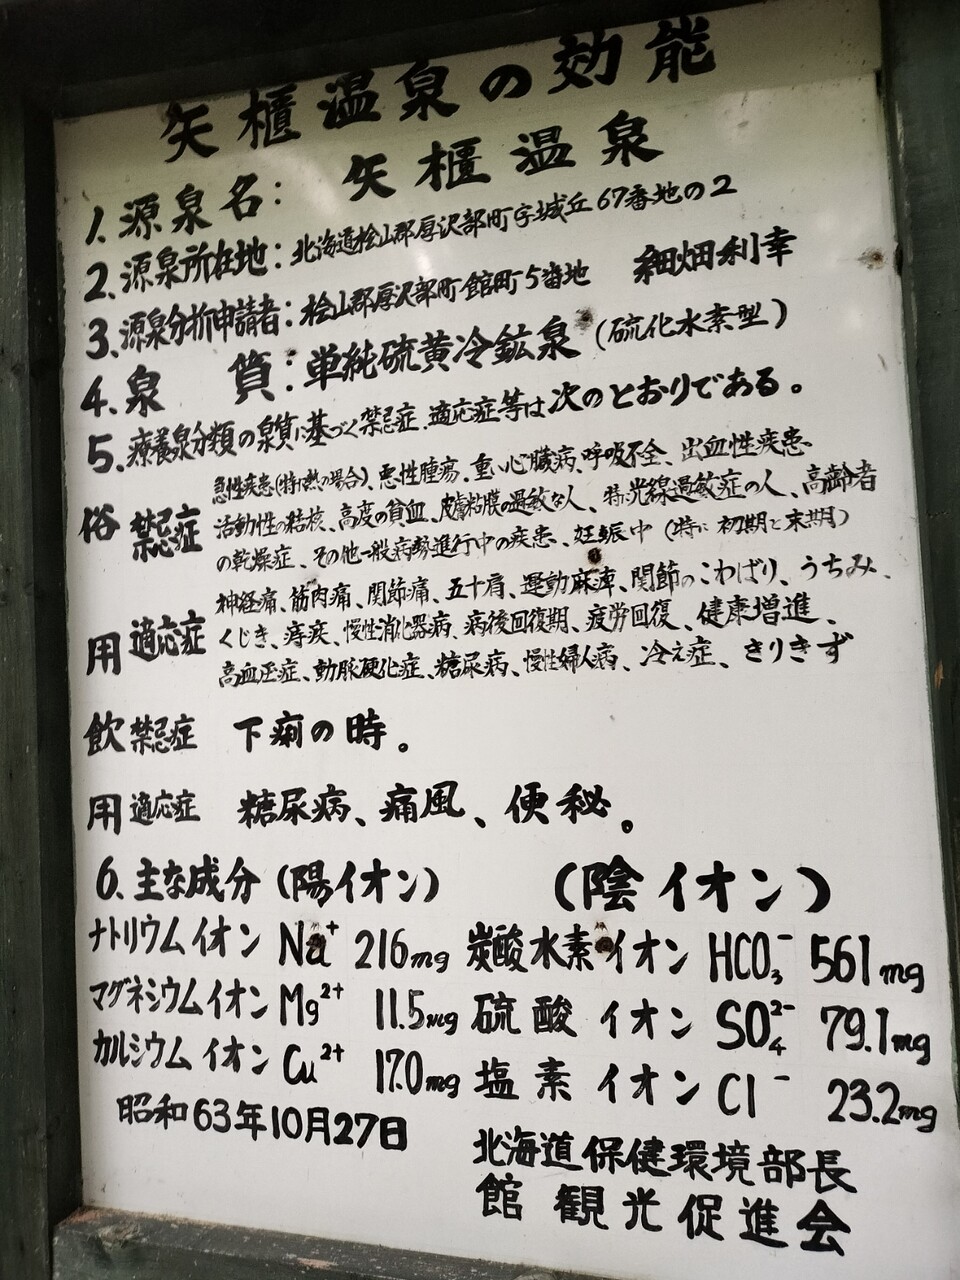 矢櫃温泉の効能
1.源泉名:矢櫃温泉
2.源泉所在地:北海道桧山郡厚沢部町字城丘67番地の2
3.源泉分析申請者:桧山郡厚沢部町館町5番地 細畑利幸
4.泉質:単純硫黄冷鉱泉(硫化水素型)
5.療養泉分類の泉質に基づく禁忌症.適応症等は次のとおりである。
浴用 禁忌症 急性疾患(特に熱の場合)、悪性腫瘍、重い心臓病、呼吸不全、出血性疾患
活動性の結核、高度の貧血、皮膚粘膜の過敏な人、特に光線過敏症の人、高齢者
の乾燥症、その他一般病勢進行中の疾患、妊娠中(特に初期と末期)
適応症 神経痛、筋肉痛、関節痛、五十肩、運動麻痺、関節のこわばり、うちみ、
くじき、痔疾、慢性消化器病、病後回復期、疲労回復、健康増進、
高血圧症、動脈硬化症、糖尿病、慢性婦人病、冷え症、きりきず
飲用 禁忌症 下痢の時。
適応症 糖尿病、痛風、便秘。
6.主な成分(陽イオン) (陰イオン)
ナトリウムイオン Na⁺ 216mg 炭酸水素イオン HCO₃⁻ 561mg
マグネシウムイオン Mg²⁺ 11.5mg 硫酸イオン SO₄²⁻ 79.1mg
カルシウムイオン Cu²⁺ 17.0mg 塩素イオン Cl⁻ 23.2mg
昭和63年10月27日
北海道保健環境部長
館観光促進会